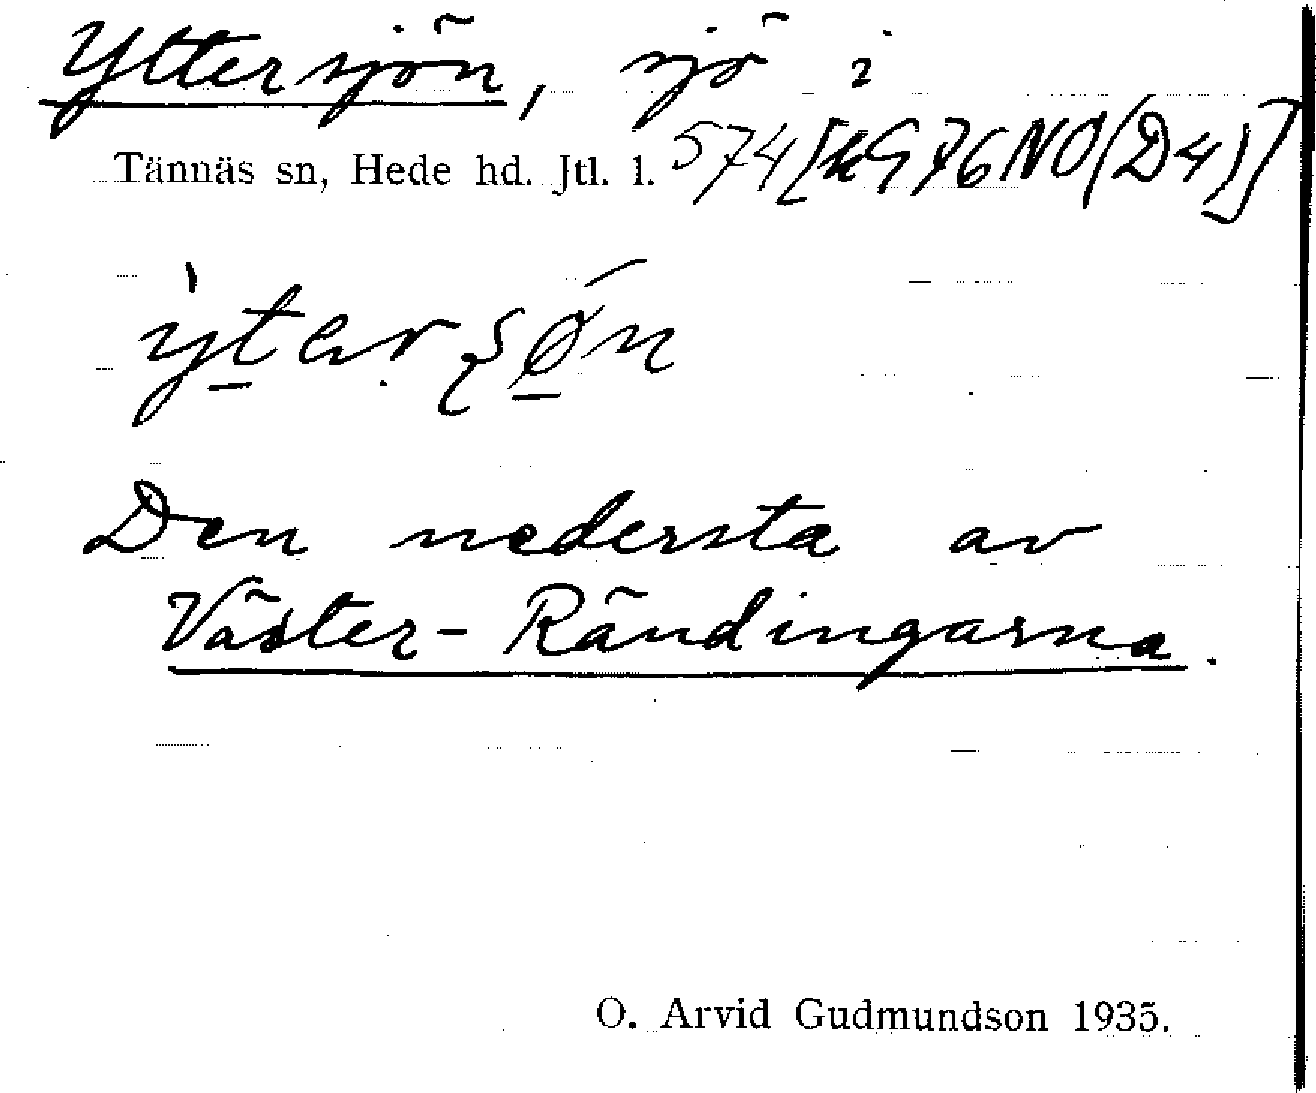 Yttersjön, sjö i
Tännäs sn, Hede hd. Jtl. l. 574 [kG76NO(D4)]
Den nedersta av
Väster-Rändingarna.
O. Arvid Gudmundson 1935.